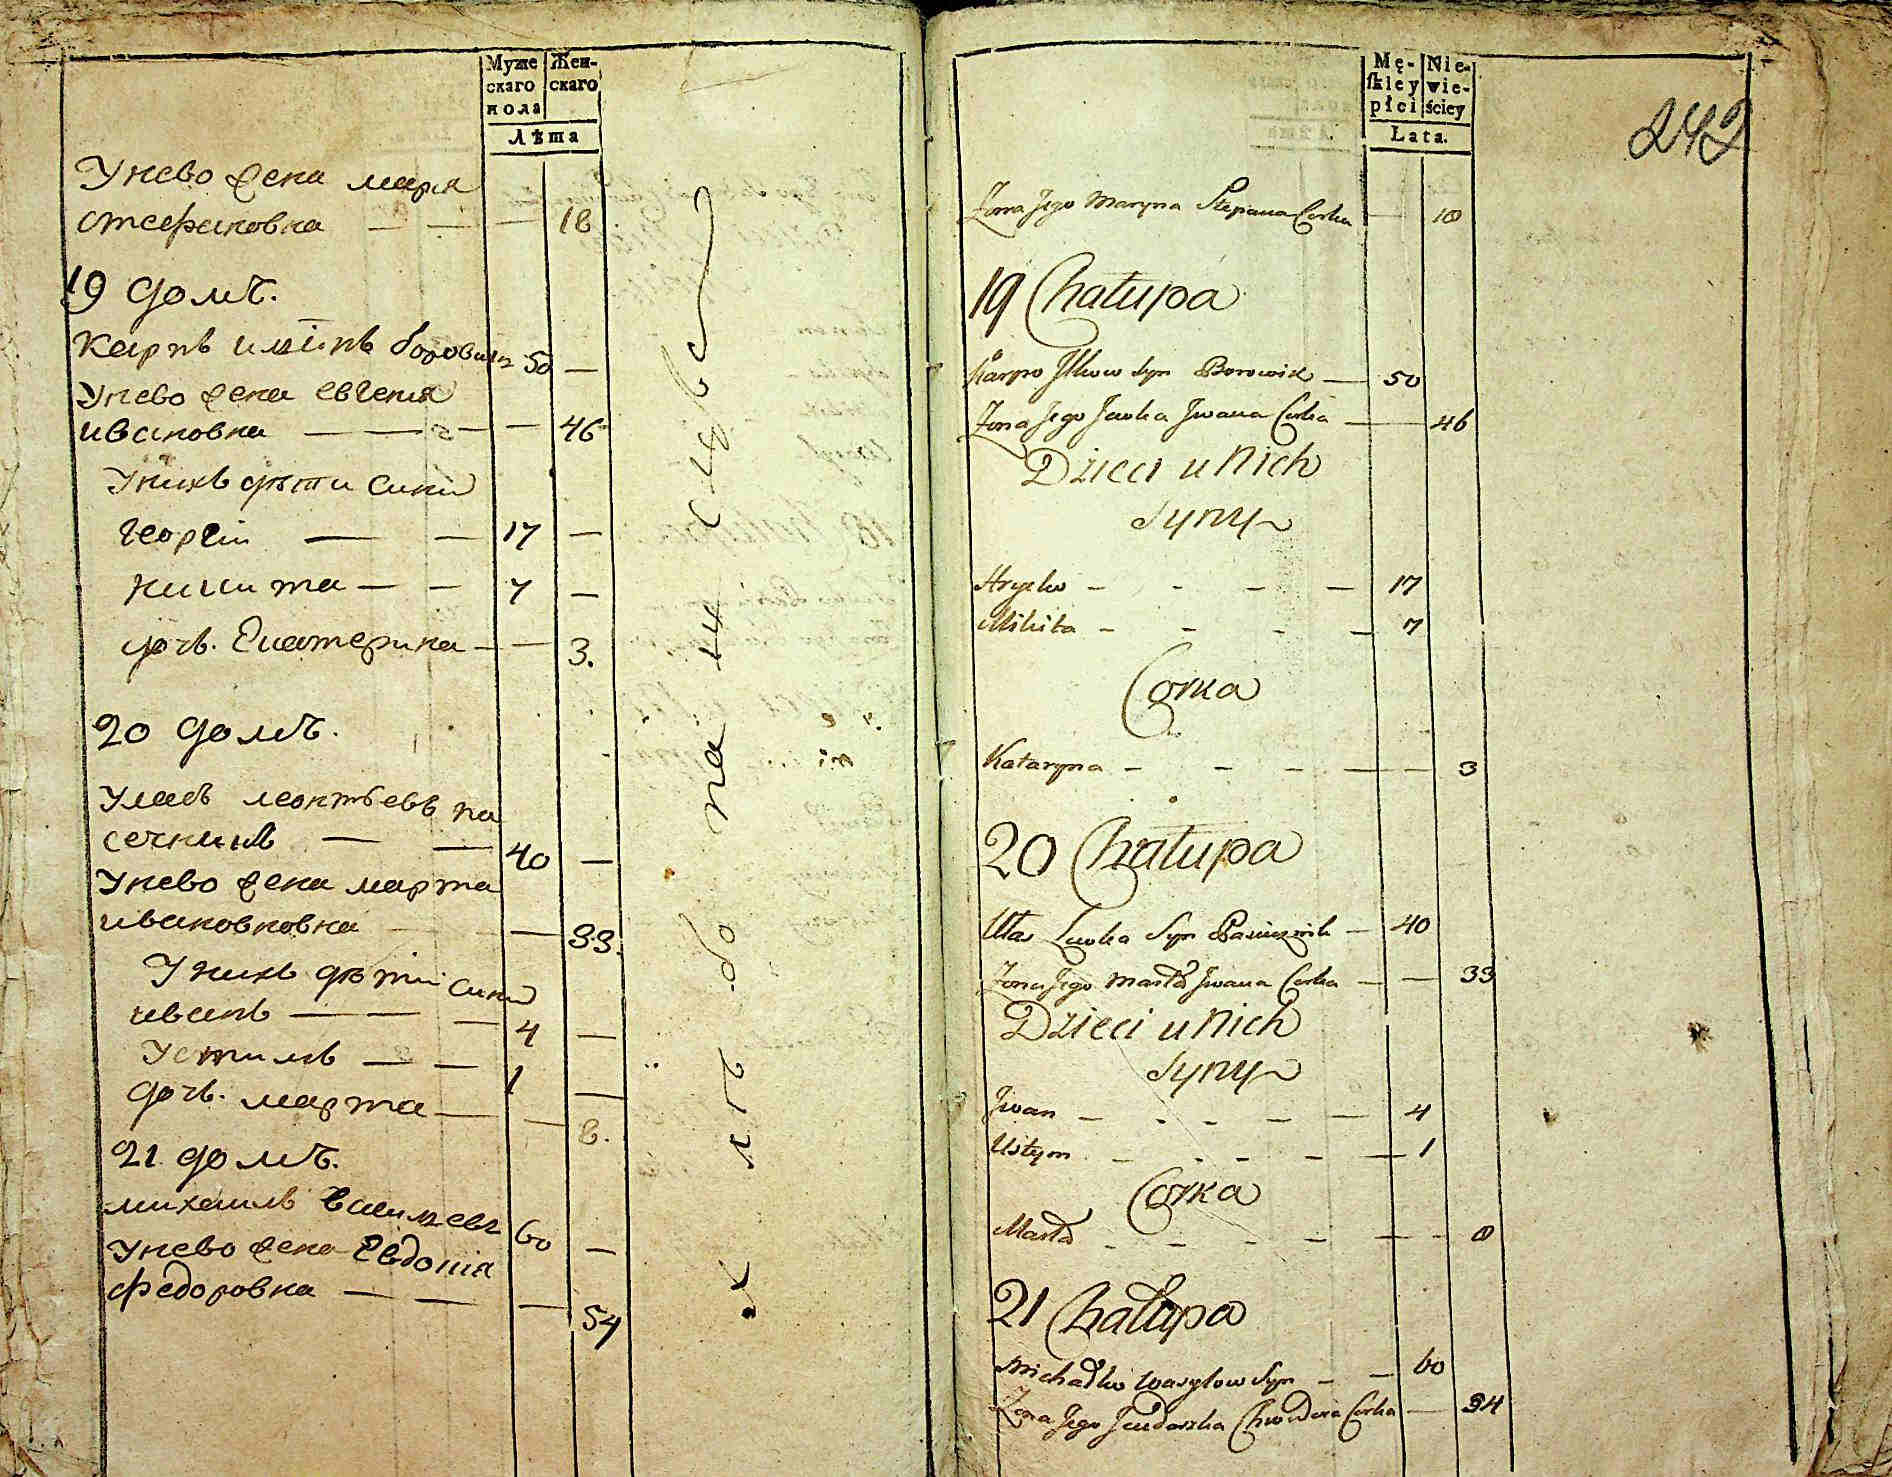 Муже
скаго
пола
Жен-
скаго
Лѣта
Унево жена марья
стефановна — — — 18
19 домъ.
Карпъ Боровикъ 50 —
Унево жена евгения
ивановна — — — 46
Унихъ дѣти сини
Георгiй — — 17 —
Никита — — 7 —
дочь. Екатерина — — 3.
20 домъ.
Уласъ леонтьевъ па
сечникъ — — 40 —
Унево жена марта
ивановновна — 33.
Унихъ дѣти сини
иванъ — — — 4 —
Устимъ — — 1 —
дочь. марта — — 8.
21 домъ.
михаилъ Васильевъ 60 —
Унево жена Евдокiя
федоровна — — — 54
Mę-
skiey
płci
Nie-
wie-
ściey
Lata.
242
Żona Jego Maryna Stepana Corka — 18
19 Chałupa
Karpo Jlkow Syn Borowik — 50
Żona Jego Jewka Jwana Corka — 46
Dzieci u Nich
Syny
Hryćko - - - — 17
Mikita - - - — 7
Corka
Kataryna - - - — — 3
20 Chałupa
Ułas Lewka Syn Pasiecznik — 40
Żona Jego Marta Jwana Corka — — 33
Dzieci u Nich
Syny
Jwan — - - - — 4
Ustym - - - - — 1
Corka
Marta - - - - — - 8
21 Chałupa
Michałko Wasylow Syn — — 60
Żona Jego Jewdoszka Chwedora Corka — 54